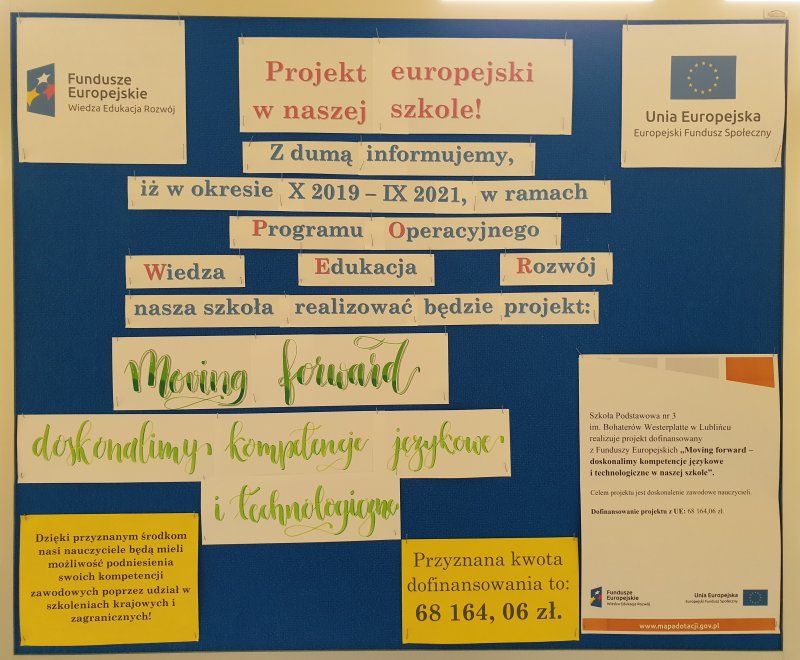 Fundusze
Europejskie
Wiedza Edukacja Rozwój
Projekt europejski
w naszej szkole!
Unia Europejska
Europejski Fundusz Społeczny
Z dumą informujemy,
iż w okresie X 2019 – IX 2021, w ramach
Programu Operacyjnego
Wiedza Edukacja Rozwój
nasza szkoła realizować będzie projekt:
Moving forward
doskonalimy kompetencje językowe
i technologiczne
Dzięki przyznanym środkom
nasi nauczyciele będą mieli
możliwość podniesienia
swoich kompetencji
zawodowych poprzez udział w
szkoleniach krajowych i
zagranicznych!
Przyznana kwota
dofinansowania to:
68 164, 06 zł.
Szkoła Podstawowa nr 3
im. Bohaterów Westerplatte w Lublińcu
realizuje projekt dofinansowany
z Funduszy Europejskich „Moving forward –
doskonalimy kompetencje językowe
i technologiczne w naszej szkole”.
Celem projektu jest doskonalenie zawodowe nauczycieli.
Dofinansowanie projektu z UE: 68 164,06 zł.
Fundusze
Europejskie
Wiedza Edukacja Rozwój
Unia Europejska
Europejski Fundusz Społeczny
www.mapadotacji.gov.pl